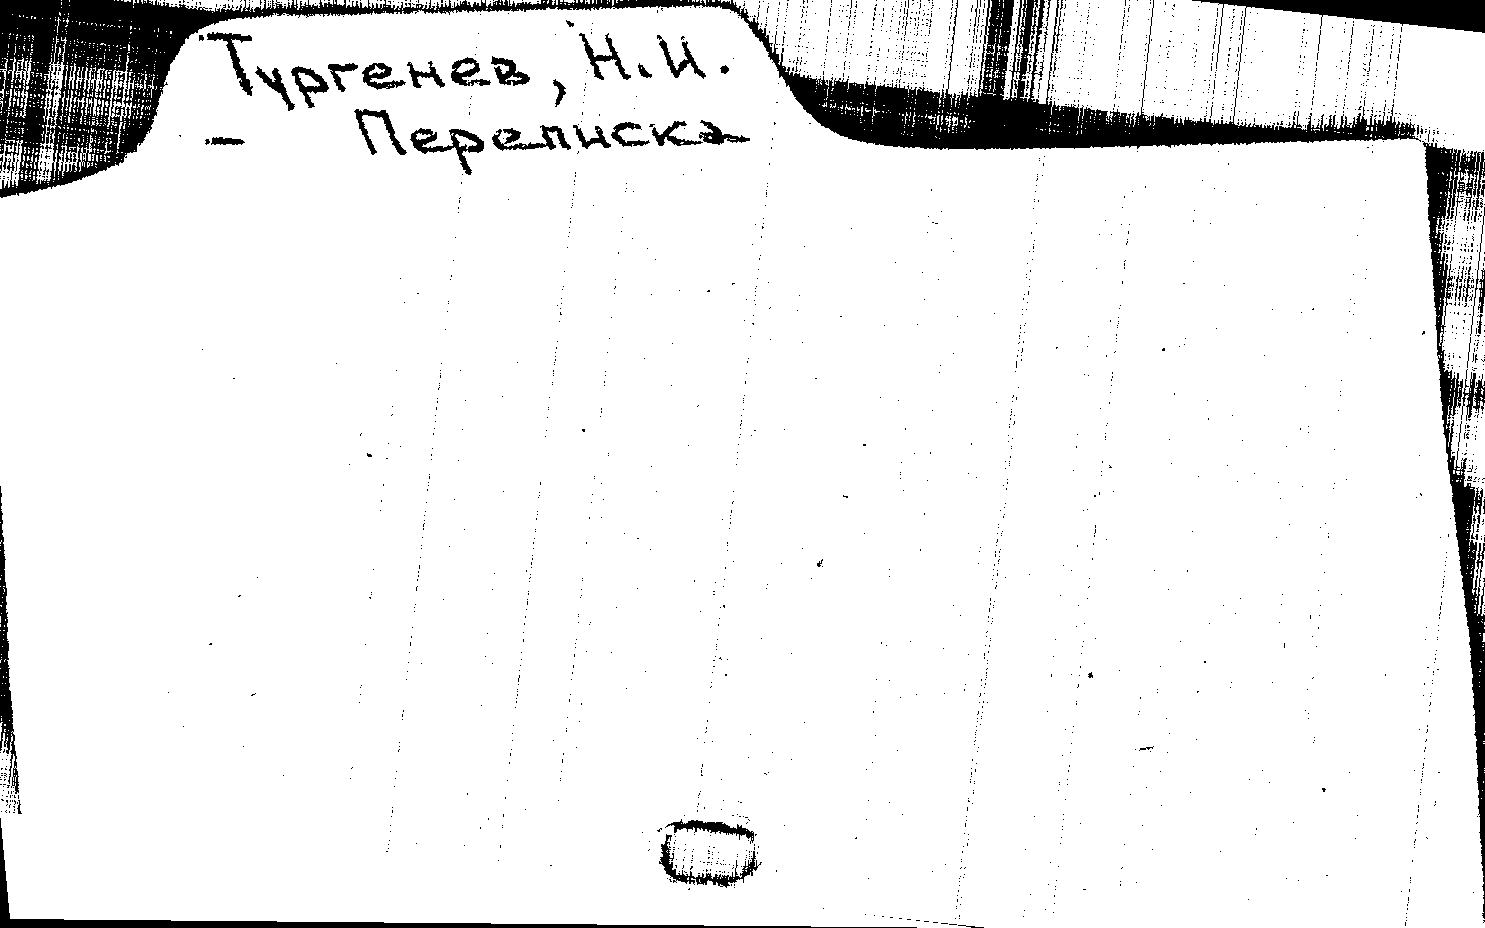 Тургенев, Н.И.
— Переписка